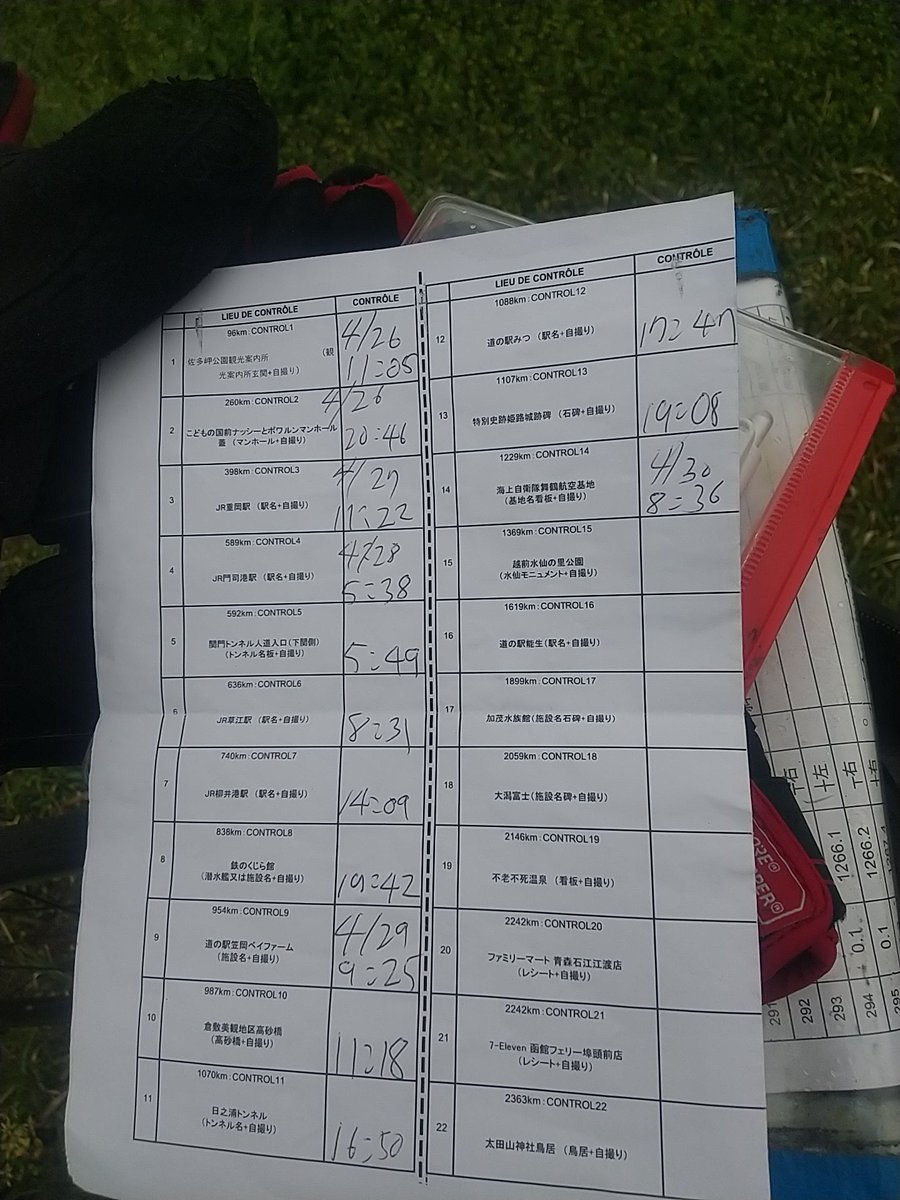 LIEU DE CONTRÔLE
CONTRÔLE
1
96km:CONTROL1
佐多岬公園観光案内所 (観
光案内所玄関+自撮り)
4/26
11:05
2
260km:CONTROL2
こどもの国前ナッシーとポワルンマンホール
蓋 (マンホール+自撮り)
4/26
20:46
3
398km:CONTROL3
JR重岡駅 (駅名+自撮り)
4/27
11:22
4
589km:CONTROL4
JR門司港駅 (駅名+自撮り)
4/28
5:38
5
592km:CONTROL5
関門トンネル人道入口(下関側)
(トンネル名板+自撮り)
5:49
6
636km:CONTROL6
JR草江駅 (駅名+自撮り)
8:31
7
740km:CONTROL7
JR柳井港駅 (駅名+自撮り)
14:09
8
838km:CONTROL8
鉄のくじら館
(潜水艦又は施設名+自撮り)
19:42
9
954km:CONTROL9
道の駅笠岡ベイファーム
(施設名+自撮り)
4/29
9:25
10
987km:CONTROL10
倉敷美観地区高砂橋
(高砂橋+自撮り)
11:18
11
1070km:CONTROL11
日之浦トンネル
(トンネル名+自撮り)
16:50
LIEU DE CONTRÔLE
CONTRÔLE
12
1088km:CONTROL12
道の駅みつ (駅名+自撮り)
17:47
13
1107km:CONTROL13
特別史跡姫路城跡碑 (石碑+自撮り)
19:08
14
1229km:CONTROL14
海上自衛隊舞鶴航空基地
(基地名看板+自撮り)
4/30
8:36
15
1369km:CONTROL15
越前水仙の里公園
(水仙モニュメント+自撮り)
16
1619km:CONTROL16
道の駅能生(駅名+自撮り)
17
1899km:CONTROL17
加茂水族館(施設名石碑+自撮り)
18
2059km:CONTROL18
大潟富士(施設名碑+自撮り)
19
2146km:CONTROL19
不老不死温泉 (看板+自撮り)
20
2242km:CONTROL20
ファミリーマート 青森石江江渡店
(レシート+自撮り)
21
2242km:CONTROL21
7-Eleven 函館フェリー埠頭前店
(レシート+自撮り)
22
2363km:CONTROL22
太田山神社鳥居 (鳥居+自撮り)
291
292
293
0.1
1266.1
十左
294
0.1
1266.2
十右
295